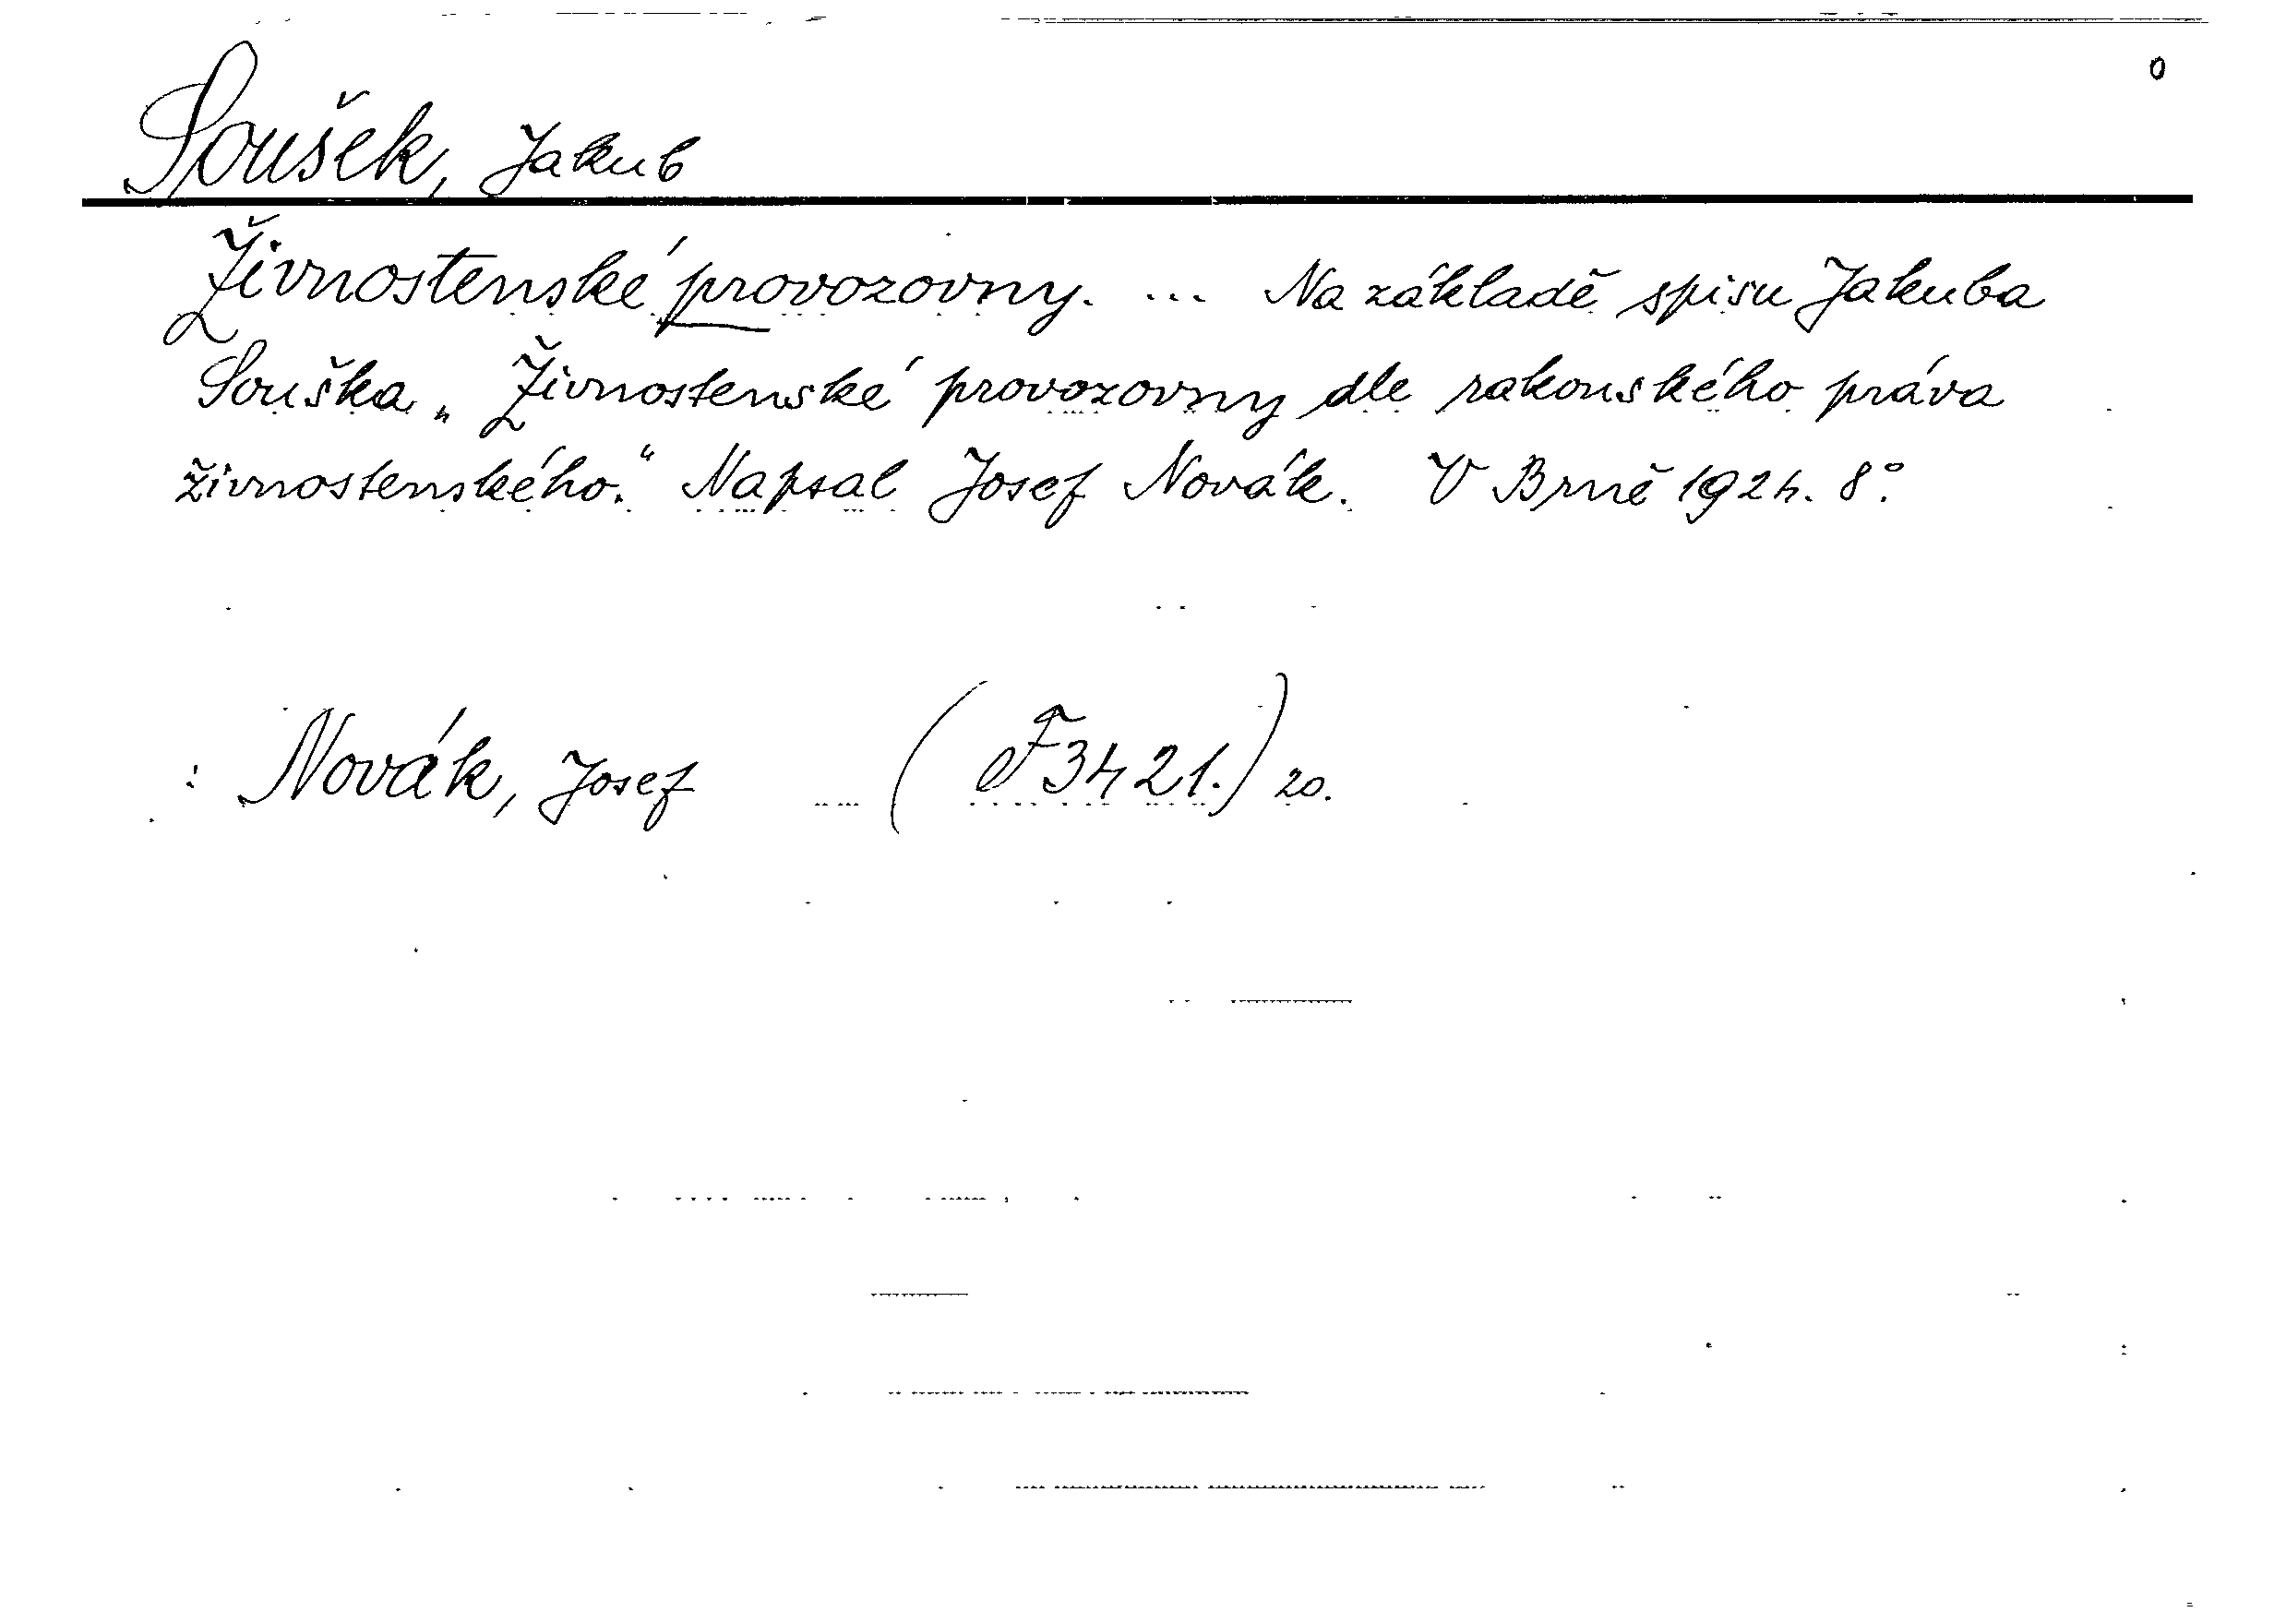 0
Soušek, Jakub
Živnostenské provozovny. ... Na základě spisu Jakuba
Souška „Živnostenské provozovny dle rakouského práva
živnostenského.“ Napsal Josef Novák. V Brně 1924. 8°.
: Novák, Josef (F 3421.) 20.